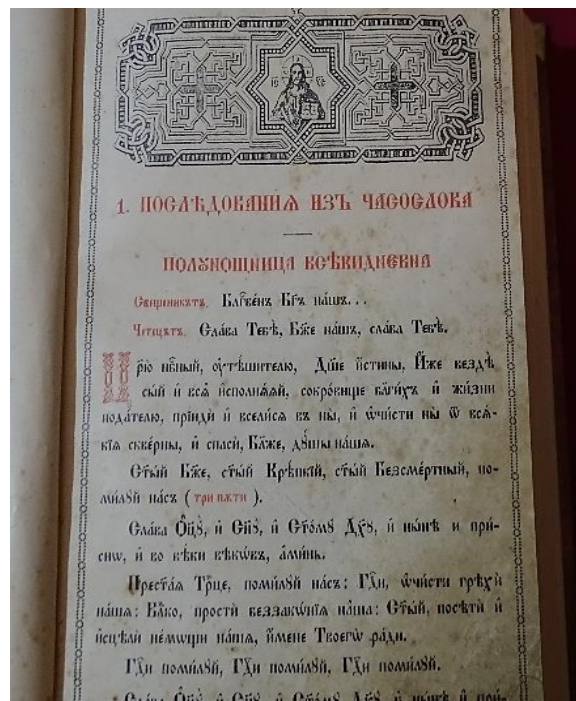 1. ПОСЛѢДОВАНИѦ ИЗЪ ЧАСОСЛОВА
ПОЛꙊНОЩНИЦА ВСѢКИДНЕВНА
Свещеникътъ. Блг҃ве́нъ Бг҃ъ на́шъ...
Четецътъ. Сла́ва Тебѣ̀, Бж҃е на́шъ, сла́ва Тебѣ̀.
Цр҃ю̀ нбⷭ҇ный, ᲂу҆тѣ́шителю, Дш҃е и҆́стины, И҆́же вездѣ̀
сы́й и҆ всѧ̑ и҆сполнѧ́ѧй, сокро́вище бл҃ги́хъ и҆ жи́зни
пода́телю, прїидѝ и҆ всели́сѧ въ ны̀, и҆ ѡ҆чи́сти ны̀ ѿ всѧ́-
кїѧ скве́рны, и҆ спасѝ, Бл҃же, дꙋ́шы на́шѧ.
Ст҃ы́й Бж҃е, ст҃ы́й Крѣ́пкїй, ст҃ы́й Безсме́ртный, по-
ми́лꙋй на́съ (три пѫти ).
Сла́ва Ѻ҆ц҃ꙋ̀, и҆ Сн҃ꙋ, и҆ Ст҃о́мꙋ Дх҃ꙋ, и҆ ны́нѣ и при́-
снѡ, и҆ во вѣ́ки вѣкѡ́въ, а҆ми́нь.
Прест҃а́ѧ Трⷪ҇це, поми́лꙋй на́съ: Гдⷭ҇и, ѡ҆чи́сти грѣхѝ
на́шѧ: Влⷣко, простѝ беззакѡ́нїѧ на́ша: Ст҃ы́й, посѣтѝ и҆
и҆сцѣлѝ не́мѡщи на́шѧ, и҆́мене Твоегѡ̀ ра́ди.
Гдⷭ҇и поми́лꙋй, Гдⷭ҇и поми́лꙋй, Гдⷭ҇и поми́лꙋй.
Сла́ва Ѻ҆ц҃ꙋ̀, и҆ Сн҃ꙋ, и҆ Ст҃о́мꙋ Дх҃ꙋ, и҆ ны́нѣ и҆ при́-